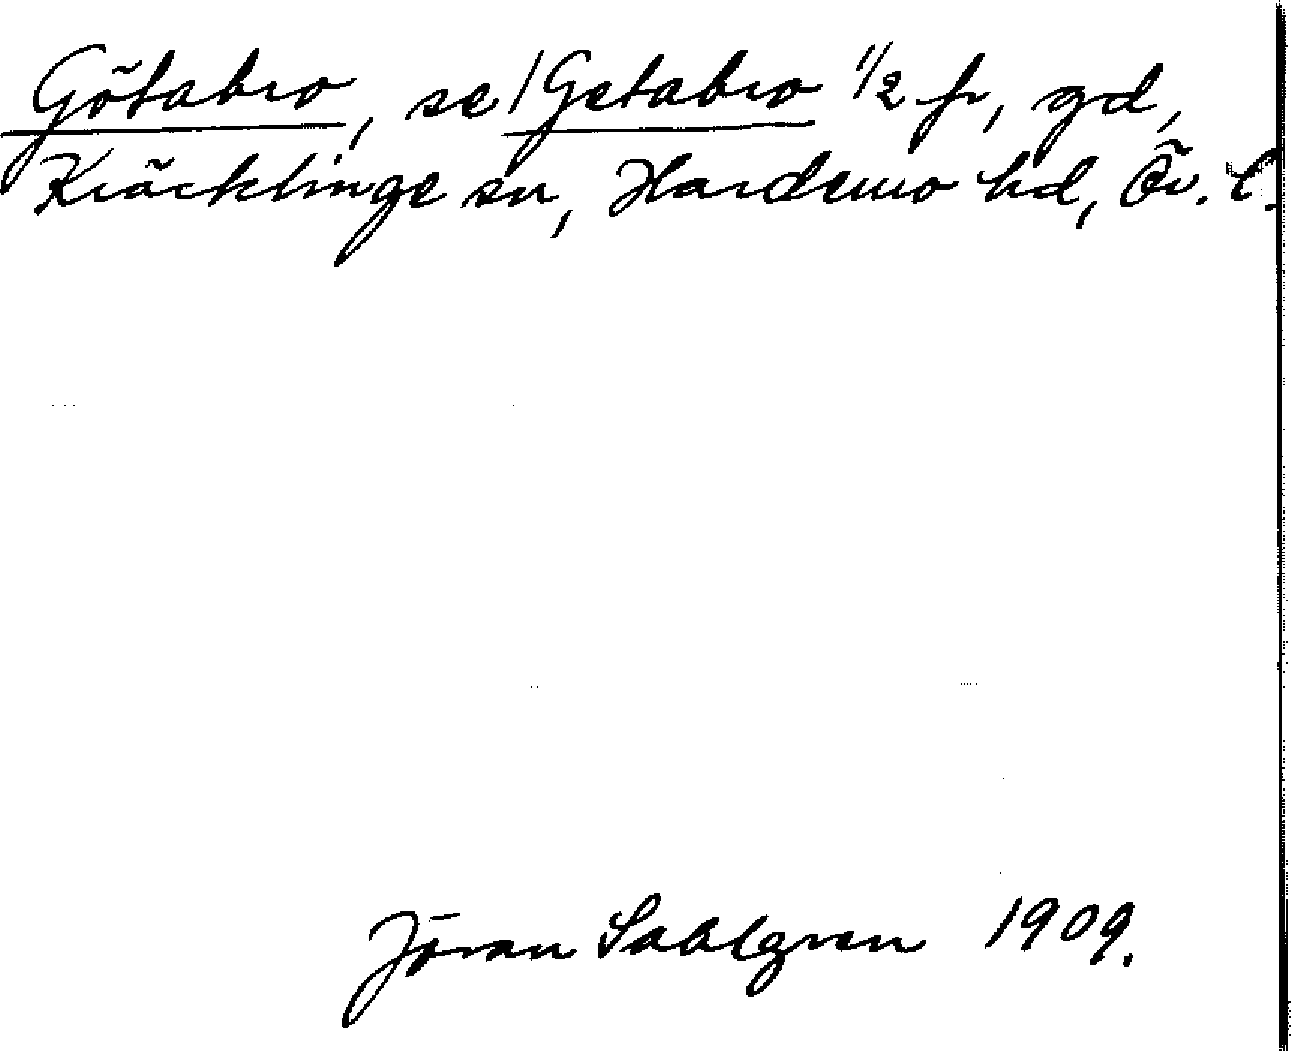 Götabro, se /Getabro 1/2 fr, gd,
Kräcklinge sn, Hardemo hd, Ör. l.
Jöran Sahlgren 1909.